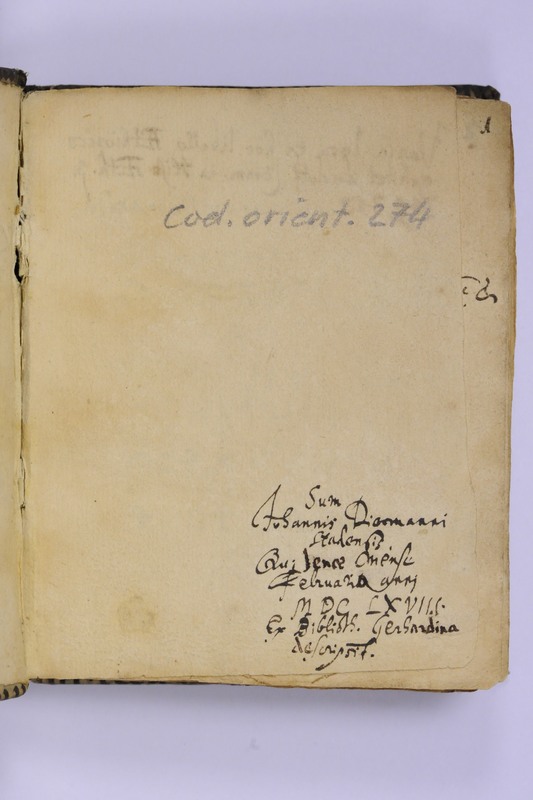 1
Cod. orient. 274
Sum
Johannis Dieomanni
Stadensis
Qui Jenæ Mense
Februario anni
MDC LXVIII.
Ex Biblioth. Gerhardina
descripsit.